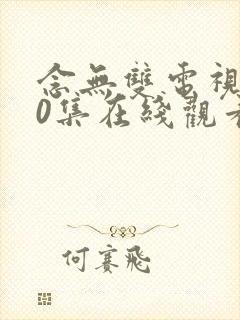 念無雙電視
0集在綫觀看
何賽飛